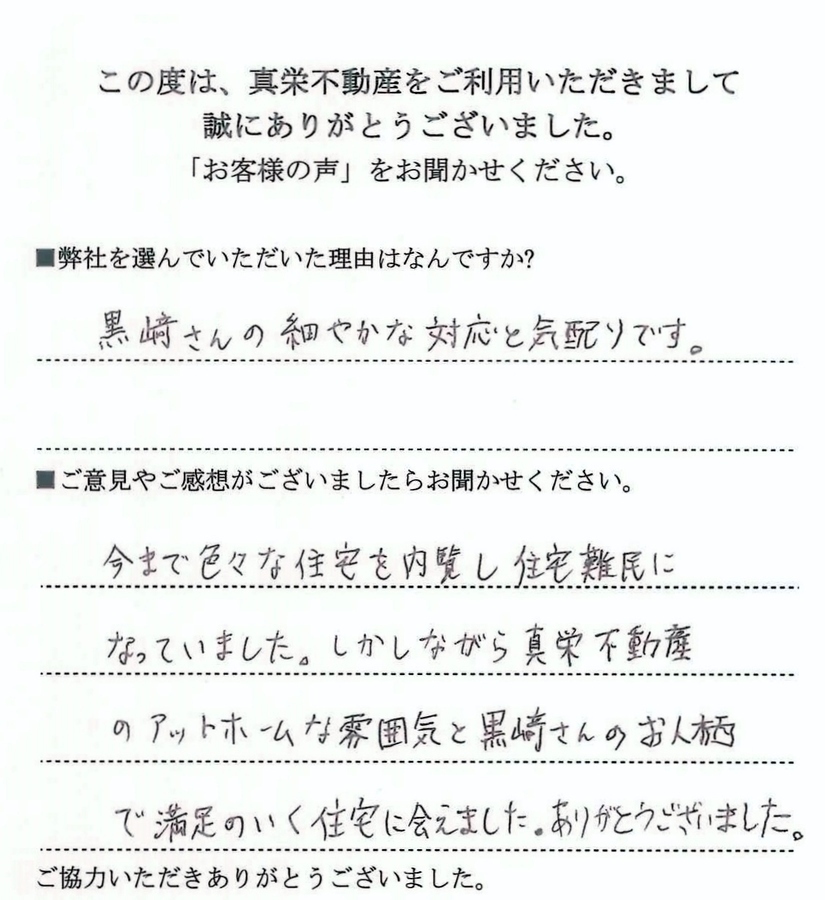 この度は、真栄不動産をご利用いただきまして
誠にありがとうございました。
「お客様の声」をお聞かせください。
■弊社を選んでいただいた理由はなんですか?
黒﨑さんの細やかな対応と気配りです。
■ご意見やご感想がございましたらお聞かせください。
今まで色々な住宅を内覧し住宅難民に
なっていました。しかしながら真栄不動産
のアットホームな雰囲気と黒﨑さんのお人柄
で満足のいく住宅に会えました。ありがとうございました。
ご協力いただきありがとうございました。